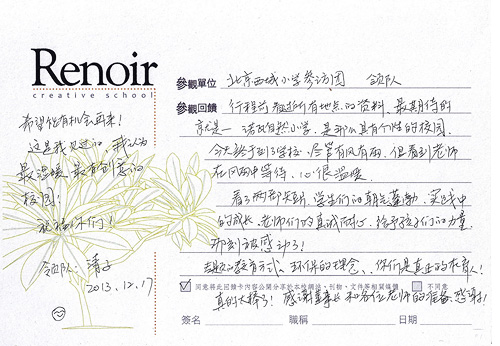 Renoir
creative school
參觀單位 北京西城小学参访团 领队
參觀回饋 行程前 所有地点的资料，最期待的
就是一 自然小学，是那么具有个性的校园，
今天终于到了学校，尽管有风有雨，但看到老师
在风雨中等待，心很温暖。
看了两部短片，学生们的朝气蓬勃，实践中
的成长，老师们的真诚耐心，给予孩子们的力量，
都 被感动了！
的教育方式、环保的理念、你们是真正的教育人！
同意將此回饋卡內容公開分享於本校網站、刊物、文件等相關媒體 不同意
真的太棒了！感谢董事长和各位老师的准备，感谢！
簽名 職稱 日期
希望你有机会再来！
这是我见过的，我认为
最温暖、最有创意的
校园！
祝福你们！
领队：清子
2013.12.17